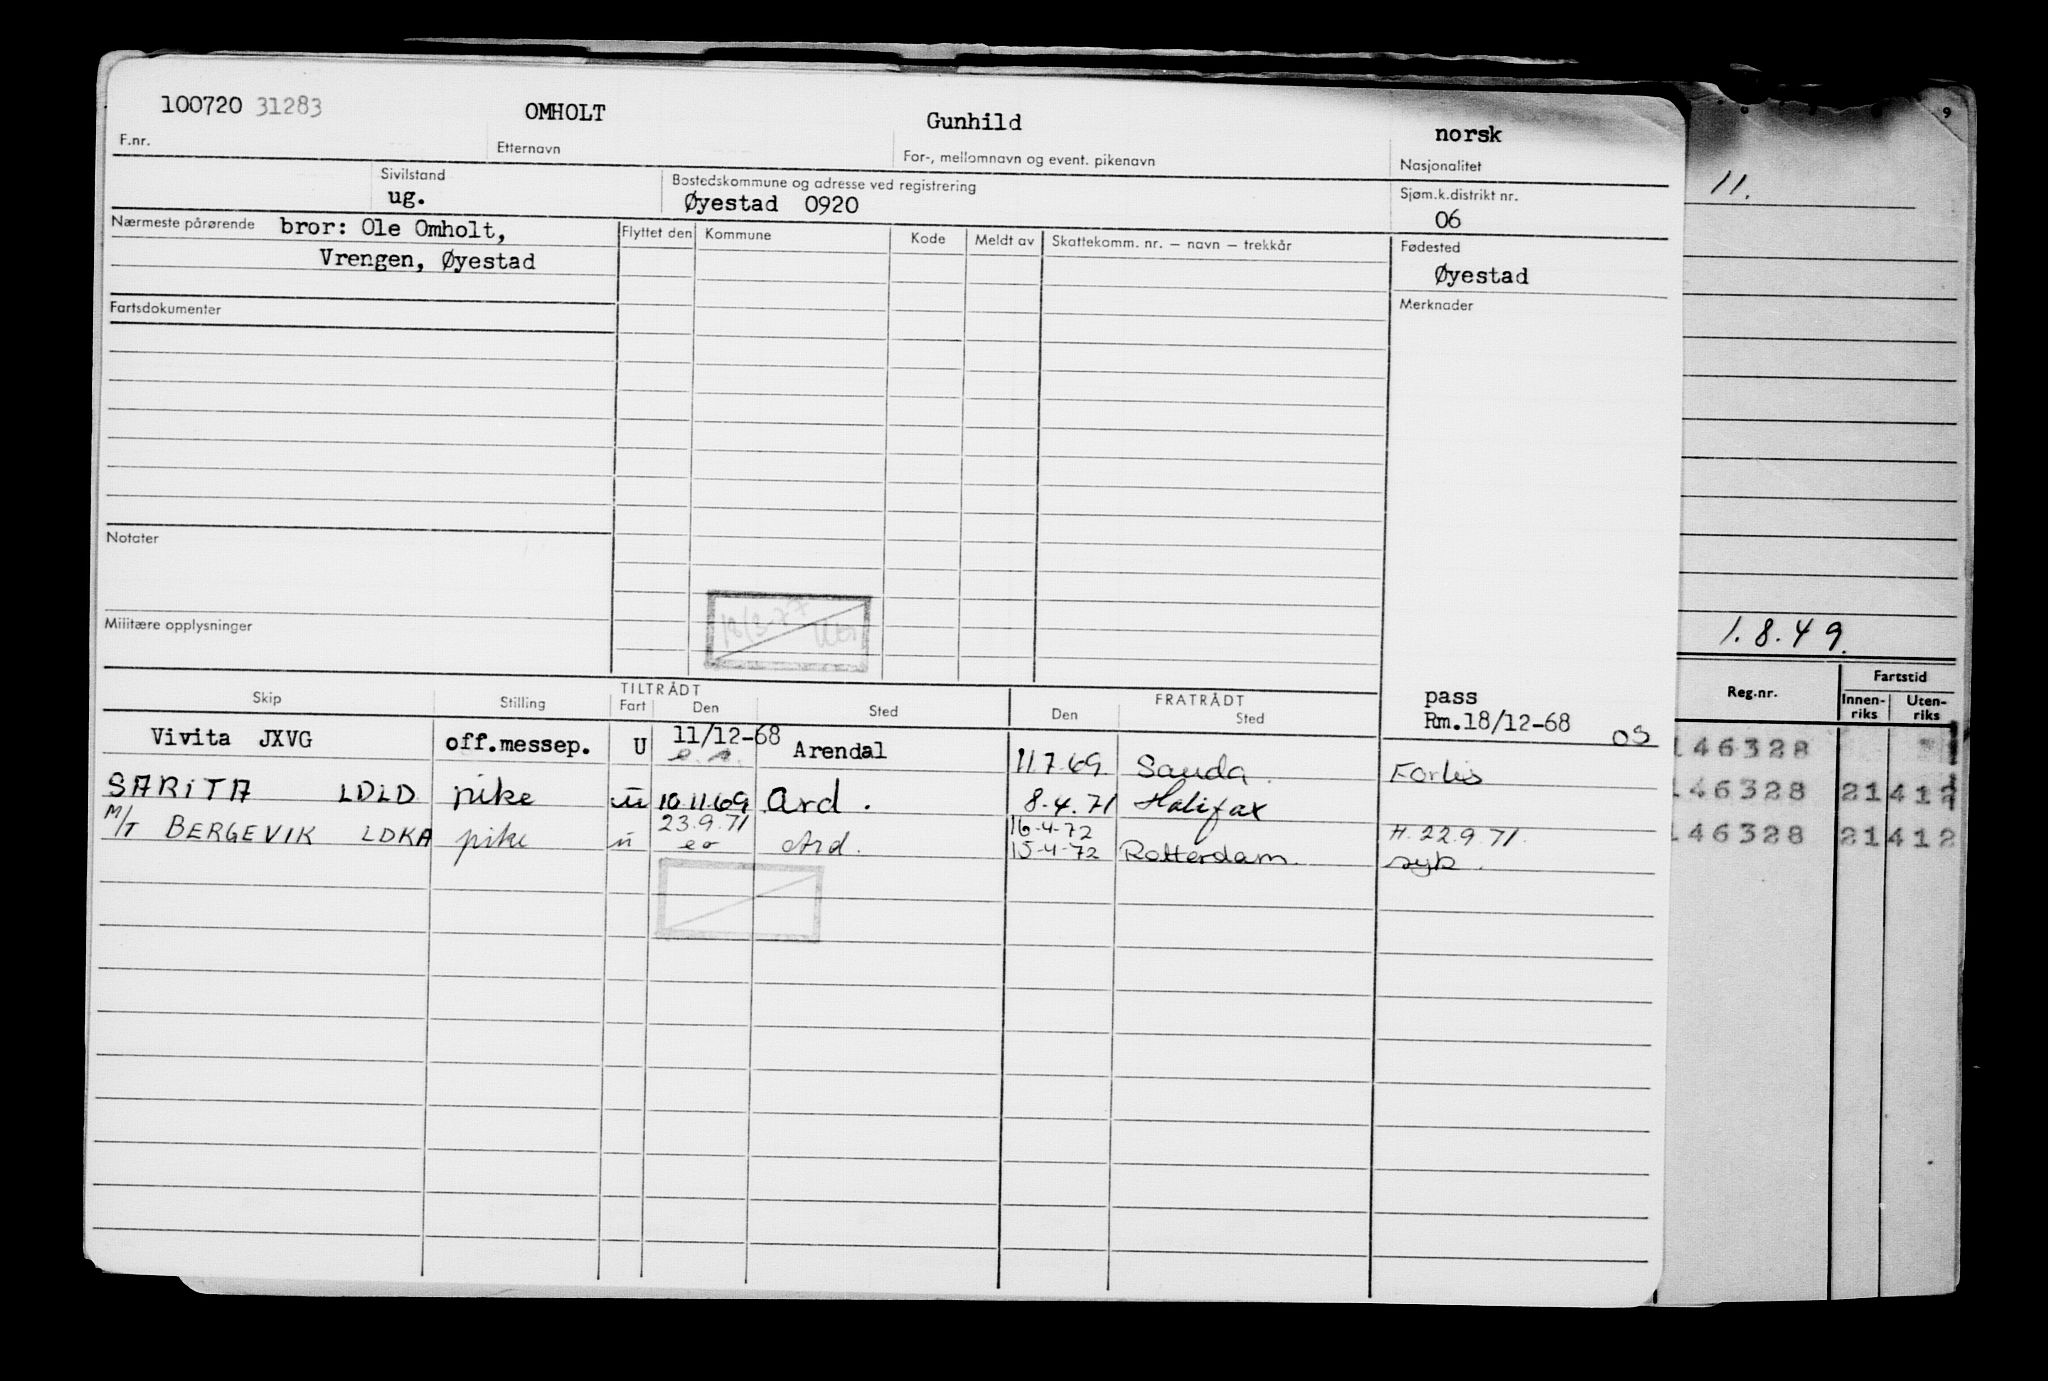 100720 31283 OMHOLT Gunhild norsk
F.nr. Etternavn For-, mellomnavn og event. pikenavn Nasjonalitet
Sivilstand Bostedskommune og adresse ved registrering Sjøm.k.distrikt nr.
ug. Øyestad 0920 06
Nærmeste pårørende bror: Ole Omholt, Flyttet den Kommune Kode Meldt av Skattekomm. nr. – navn – trekkår Fødested
Vrengen, Øyestad Øyestad
Fartsdokumenter Merknader
Notater
Militære opplysninger
TILTRÅDT FRATRÅDT pass
Skip Stilling Fart Den Sted Den Sted Rm.18/12-68 OS
Vivita JXVG off.messep. U 11/12-68 Arendal 11.7.69. Sauda. Forlis
SARITA LDLD pike u 10.11.69 Ard. 8.4.71 Halifax
M/T BERGEVIK LDKA pike u 23.9.71 Ard. 16-4-72 H.22.9.71.
15-4-72 Rotterdam. syk.
9
11.
1.8.49.
Reg.nr. Fartstid
Innen-riks Uten-riks
146328
146328 21 412
146328 21 412